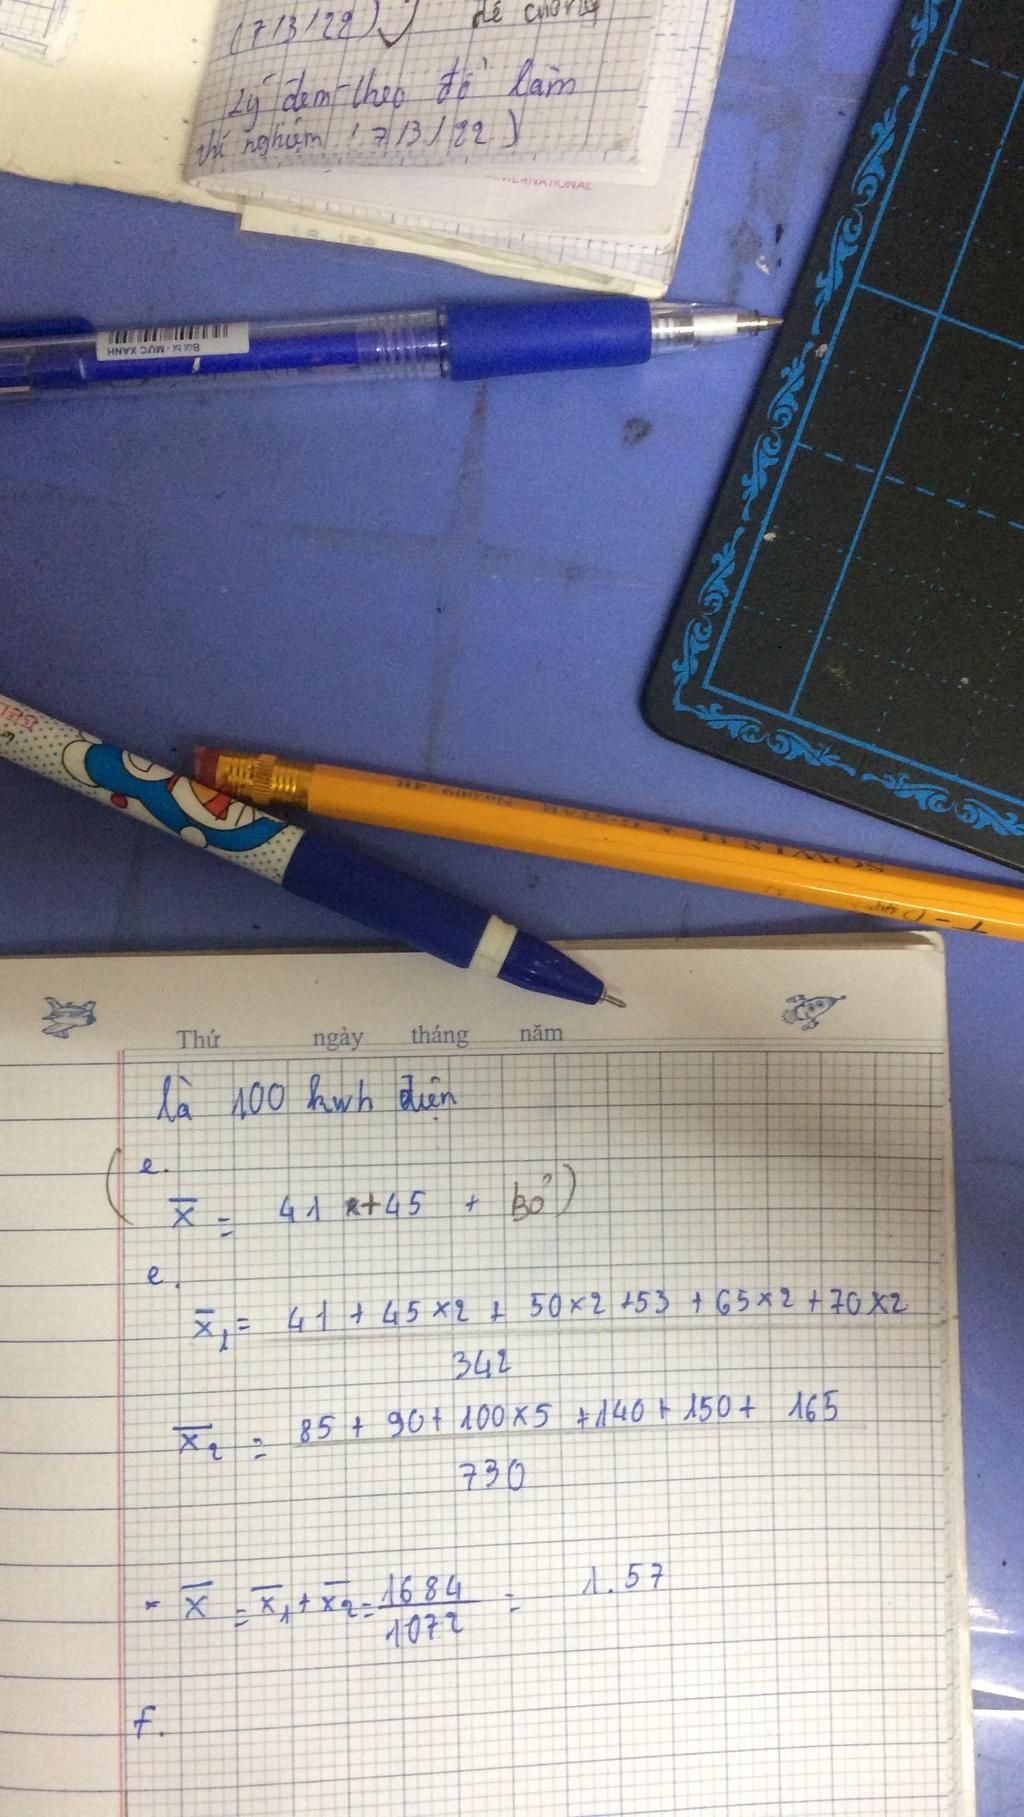 (7/3/22)
Lý đem theo đồ làm
thí nghiệm (7/3/22)
INTERNATIONAL
Bút bi - MỰC XANH
Thứ ngày tháng năm
là 100 kwh điện
e.
x̄ = 41 + 45 + Bỏ)
e.
x̄₁ = 41 + 45×2 + 50×2 +53 +65×2 +70×2
342
x̄₂ = 85 + 90+ 100×5 +140+150+ 165
730
- x̄ = x̄₁ + x̄₂ = 1684 / 1072 = 1.57
f.